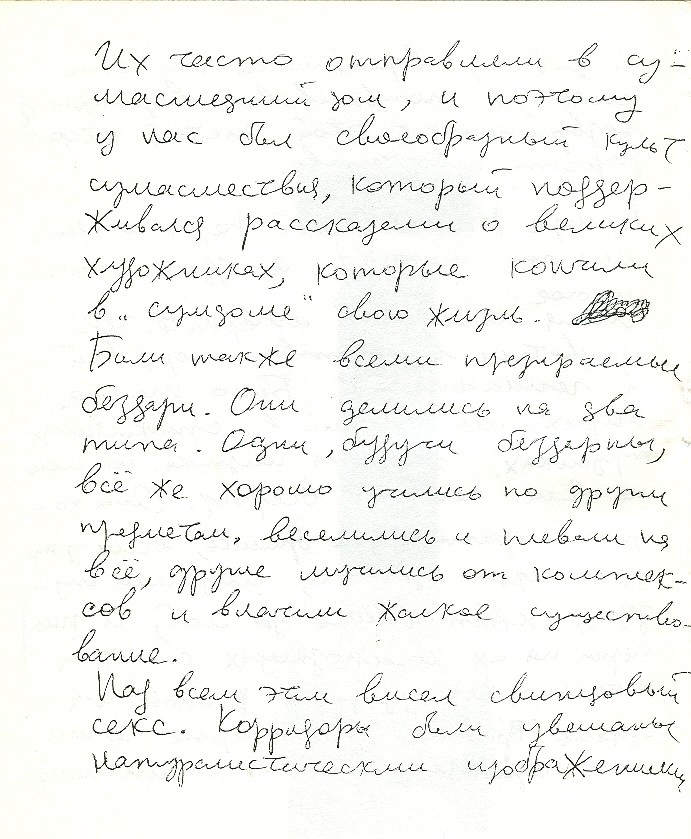 Их часто отправляли в су-
масшедший дом, и поэтому
у нас был своеобразный культ
сумасшествия, который поддер-
живался рассказами о великих
художниках, которые кончили
в „сумдоме" свою жизнь.
Были также всеми презираемые
бездари. Они делились на два
типа. Одни, будучи бездарны,
всё же хорошо учились по другим
предметам, веселились и плевали на
всё, другие мучились от комплек-
сов и влачили жалкое существо-
вание.
Над всем этим висел свинцовый
секс. Корридоры были увешаны
натуралистическими изображениями